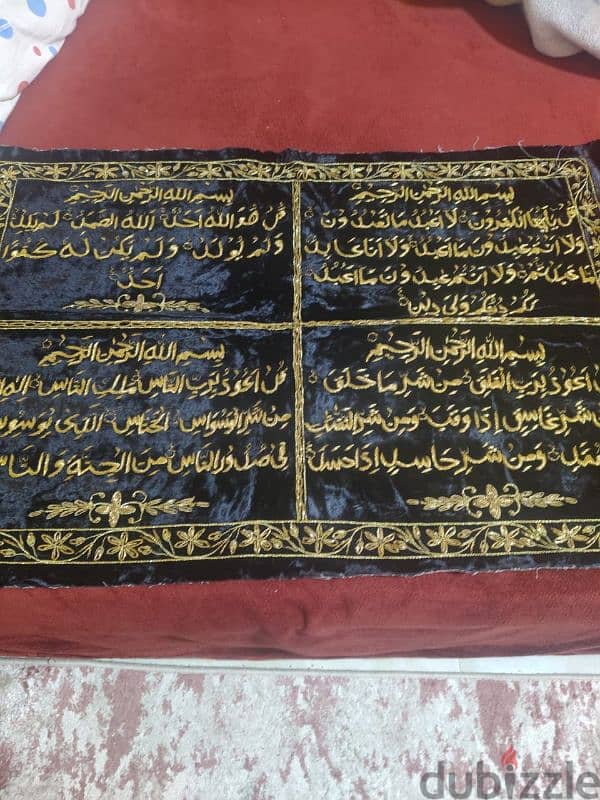 بِسْمِ اللهِ الرَّحْمٰنِ الرَّحِيْمِ
قُلْ يٰاَيُّهَا الْكٰفِرُوْنَ لَا اَعْبُدُ مَا تَعْبُدُوْنَ
وَلَا اَنْتُمْ عٰبِدُوْنَ مَا اَعْبُدُ وَلَا اَنَا عَابِدٌ
مَا عَبَدْتُّمْ وَلَا اَنْتُمْ عٰبِدُوْنَ مَا اَعْبُدُ
لَكُمْ دِيْنُكُمْ وَلِىَ دِيْنِ
بِسْمِ اللهِ الرَّحْمٰنِ الرَّحِيْمِ
قُلْ هُوَ اللهُ اَحَدٌ اَللهُ الصَّمَدُ لَمْ يَلِدْ
وَلَمْ يُوْلَدْ وَلَمْ يَكُنْ لَّهٗ كُفُوًا
اَحَدٌ
بِسْمِ اللهِ الرَّحْمٰنِ الرَّحِيْمِ
اَعُوْذُ بِرَبِّ الْفَلَقِ مِنْ شَرِّ مَا خَلَقَ
شَرِّ غَاسِقٍ اِذَا وَقَبَ وَمِنْ شَرِّ النَّفّٰثٰتِ
وَمِنْ شَرِّ حَاسِدٍ اِذَا حَسَدَ
بِسْمِ اللهِ الرَّحْمٰنِ الرَّحِيْمِ
قُلْ اَعُوْذُ بِرَبِّ النَّاسِ مَلِكِ النَّاسِ اِلٰهِ
مِنْ شَرِّ الْوَسْوَاسِ الْخَنَّاسِ الَّذِىْ يُوَسْوِسُ
فِىْ صُدُوْرِ النَّاسِ مِنَ الْجِنَّةِ وَالنَّاسِ
dubizzle